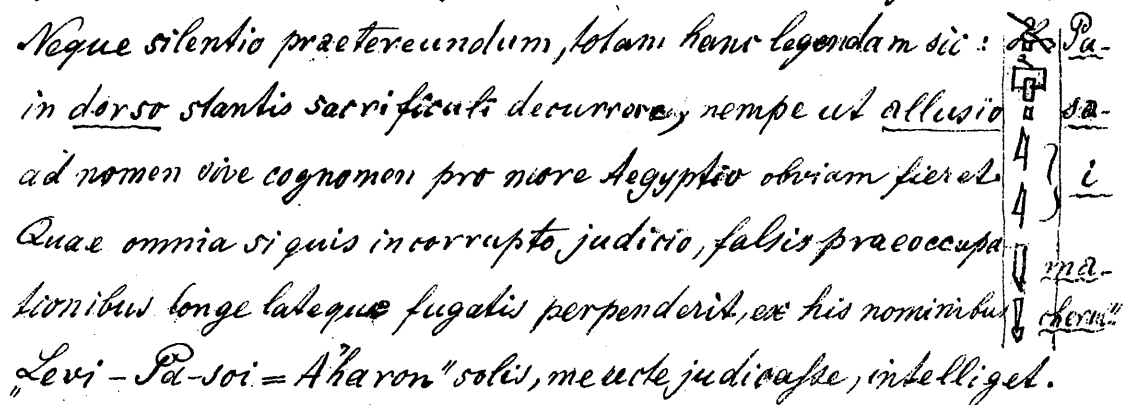 Neque silentio prætereundum, totam hanc legendam sic: Pa-
in dorso stantis sacrificuli decurrere, nempe ut allusio sa-
ad nomen sive cognomen pro more Aegyptio obviam fieret. i
Quae omnia si quis incorrupto judicio, falsis praeoccupa ma-
tionibus longe lateque fugatis perpenderit, ex his nominibus cherm"
„Levi – Pa-soi = A'haron" solis, me recte judicasse, intelliget.